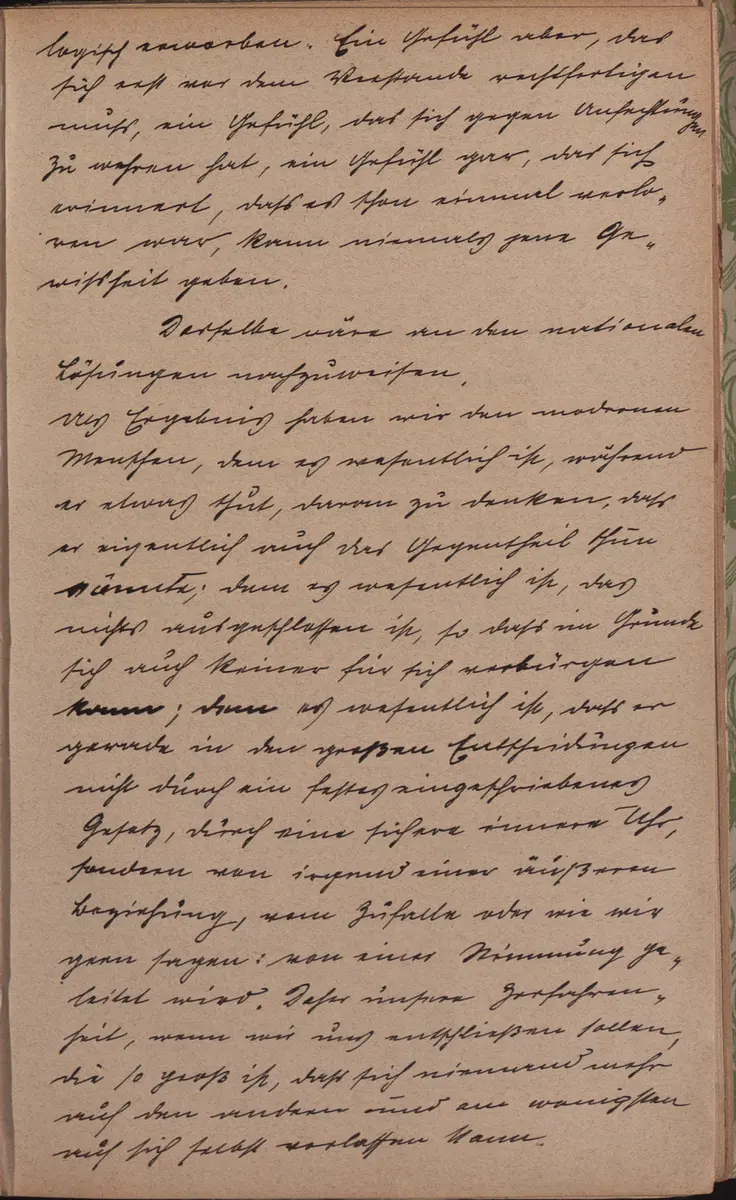 logisch erworben. Ein Gefühl aber, das
sich erst vor dem Verstande rechtfertigen
muſs, ein Gefühl, das sich gegen Anfechtungen
zu wehren hat, ein Gefühl gar, das sich
erinnert, daſs es schon einmal verlo„
ren war, kann niemals jene Ge„
wiſsheit geben.
Dasselbe wäre an den nationalen
Lösungen nachzuweisen.
Als Ergebnis haben wir den modernen
Menschen, dem es wesentlich ist, während
er etwas thut, daran zu denken, daſs
er eigentlich auch das Gegentheil thun
könnte; dem es wesentlich ist, das
nichts ausgeschlossen ist, so daſs im Grunde
sich auch keiner für sich verbürgen
kann; dem es wesentlich ist, daſs er
gerade in den großen Entscheidungen
nicht durch ein festes eingeschriebenes
Gesetz, durch eine sichere innere Uhr,
sondern von irgend einer äußeren
Beziehung, vom Zufalle oder wie wir
gern sagen: von einer Stimmung ge„
leitet wird. Daher unsere Zerfahren„
heit, wenn wir uns entschließen sollen,
die so groß ist, daſs sich niemand mehr
auf den andern und am wenigsten
auf sich selbst verlassen kann.